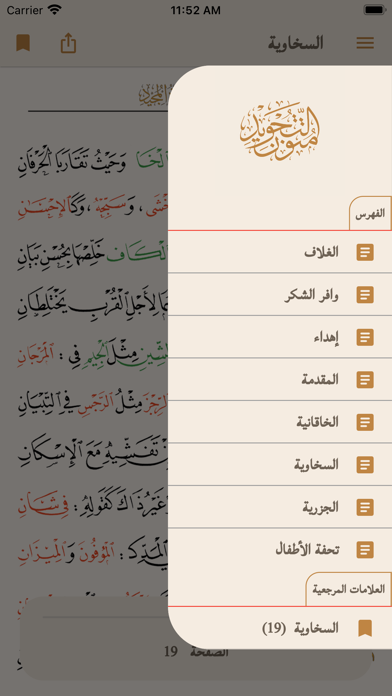 Carrier 11:52 AM
السخاوية
متون التجويد
الفهرس
الغلاف
وافر الشكر
إهداء
المقدمة
الخاقانية
السخاوية
الجزرية
تحفة الأطفال
العلامات المرجعية
السخاوية (19)
وَحَيْثُ تَقَارَبَا الْحَرْفَانِ
، وَسَبِّحْهُ ، وَكَالْإِحْسَانِ
الْكَافَ خَلِّصْهَا بِحُسْنِ بَيَانِ
لِأَجْلِ الْقُرْبِ يَخْتَلِطَانِ
مِثْلَ الْجِيمِ فِي : الْمَرْجَانِ
الرِّجْزَ مِثْلُ الرِّجْسِ فِي التِّبْيَانِ
تَفَشِّيهِ مَعَ الْإِسْكَانِ
ذَاكَ كَقَوْلِهِ : فِي شَانِ
الْمُوفُونَ وَالْمِيزَانِ
الصفحة 19